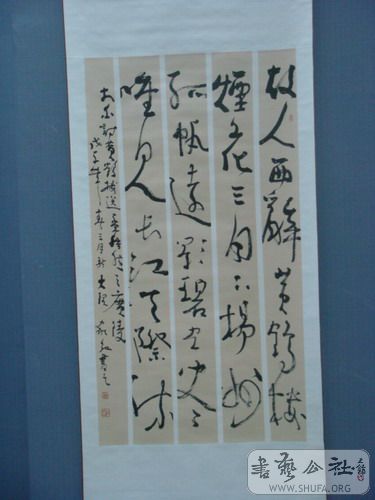 故人西辭黃鶴樓
煙花三月下揚州
孤帆遠影碧空盡
唯見長江天際流
太白詩黃鶴樓送孟浩然之廣陵
戊子年春三月於 書之
書藝公社
WWW.SHUFA.ORG